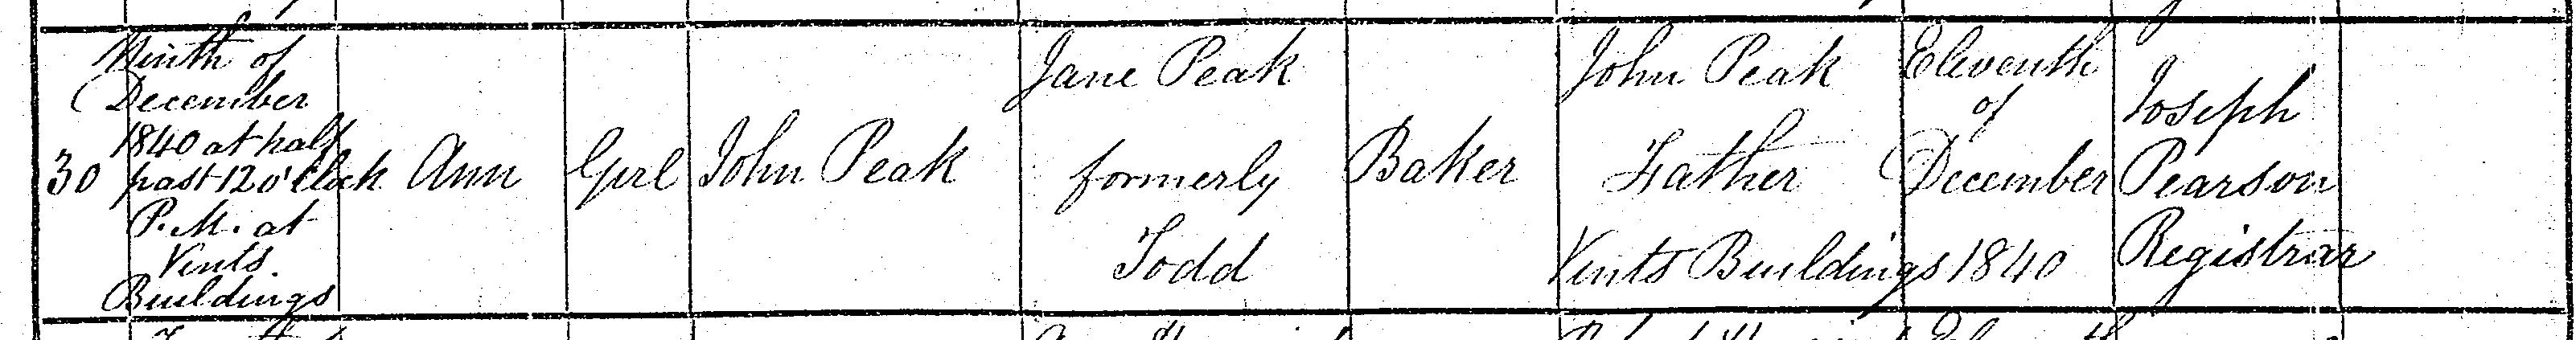 30
Ninth of
December
1840 at half
past 12 o'Clock
P.M. at
Vents
Buildings
Ann
Girl
John Peak
Jane Peak
formerly
Todd
Baker
John Peak
Father
Vents Buildings
Eleventh
of
December
1840
Joseph
Pearson
Registrar